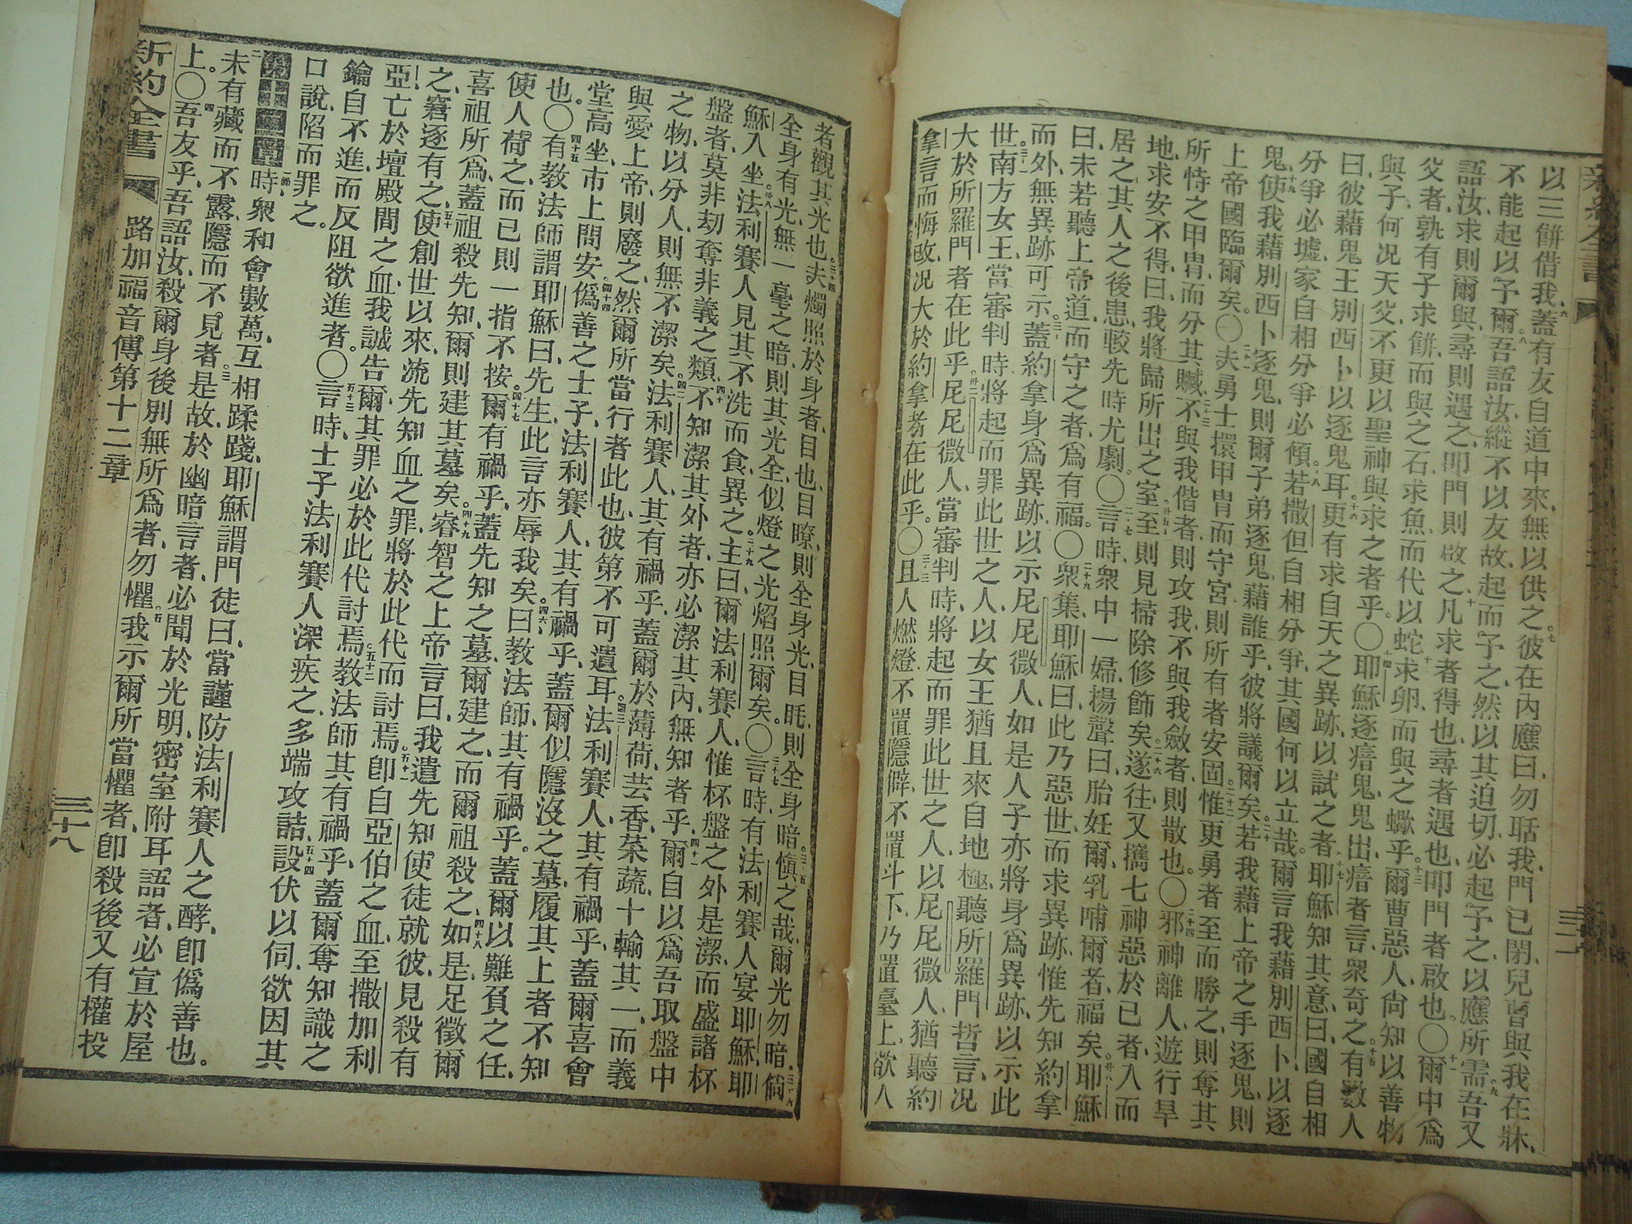 以三餅借我、蓋有友自道中來、無以供之。彼在內應曰、勿聒我、門已閉、兒曹與我在牀、
不能起以予爾。吾語汝、縱不以友故、起而予之、然以其迫切、必起予之、以應所需。吾又
語汝、求則爾與、尋則遇之、叩門則啟之、凡求者得也、尋者遇也、叩門者啟也。〇爾中爲
父者、孰有子求餅、而與之石、求魚而代以蛇、求卵而與之蠍乎。爾曹惡人、尚知以善物
與子、何況天父、不更以聖神與求之者乎。〇耶穌逐瘖鬼、鬼出、瘖者言、衆奇之。有數人
曰、彼藉鬼王別西卜以逐鬼耳。更有求自天之異跡、以試之者。耶穌知其意、曰、國自相
分爭必墟、家自相分爭必傾。若撒但自相分爭、其國何以立哉。爾言我藉別西卜以逐
鬼、使我藉別西卜逐鬼、則爾子弟逐鬼、藉誰乎、彼將議爾矣。若我藉上帝之手逐鬼、則
上帝國臨爾矣。〇夫勇士環甲冑而守宮、則所有者安固、惟更勇者至而勝之、則奪其
所恃之甲冑、而分其贓。不與我偕者、則攻我、不與我斂者、則散也。〇邪神離人、遊行旱
地、求安不得、曰、我將歸所出之室、至則見掃除修飾矣、遂往、又攜七神惡於己者、入而
居之、其人之後患、較先時尤劇。〇言時、衆中一婦揚聲曰、胎妊爾、乳哺爾者、福矣。耶穌
曰、未若聽上帝道而守之者、爲有福。〇衆集、耶穌曰、此乃惡世、而求異跡、惟先知約拿
而外、無異跡可示。蓋約拿身爲異跡、以示尼尼微人、如是人子亦將身爲異跡、以示此
世。南方女王、當審判時、將起而罪此世之人、以女王猶且來自地極、聽所羅門哲言、况
大於所羅門者在此乎。尼尼微人、當審判時、將起而罪此世之人、以尼尼微人、猶聽約
拿言而悔改、况大於約拿者在此乎。〇且人燃燈、不置隱僻、不置斗下、乃置臺上、欲入
者觀其光也。夫燭照於身者、目也、目瞭、則全身光、目眊、則全身暗。愼之哉、爾光勿暗。倘
全身有光、無一毫之暗、則其光全、似燈之光焰照爾矣。〇言時、有法利賽人宴耶穌、耶
穌入坐。法利賽人見其不洗而食、異之。主曰、爾法利賽人、惟杯盤之外是潔、而盛諸杯
盤者、莫非刧奪非義之類。不知潔其外者、亦必潔其內、無知者乎。爾自以爲吾取盤中
之物、以分人、則無不潔矣。法利賽人、其有禍乎、蓋爾於薄荷、芸香、菜蔬、十輸其一、而義
與愛上帝、則廢之、然爾所當行者此也、彼第不可遺耳。法利賽人、其有禍乎、蓋爾喜會
堂高坐、市上問安。僞善之士子、法利賽人、其有禍乎、蓋爾似隱沒之墓、履其上者不知
也。〇有教法師謂耶穌曰、先生、此言亦辱我矣。曰、教法師其有禍乎。蓋爾以難負之任、
使人荷之、而己則一指不按。爾有禍乎、蓋先知之墓、爾建之、而爾祖殺之、如是、足徵爾
喜祖所爲、蓋祖殺先知、爾則建其墓矣。睿智之上帝言曰、我遣先知使徒就彼、見殺有
之、窘逐有之、使創世以來、流先知血之罪、將於此代而討焉。卽自亞伯之血、至撒加利
亞亡於壇殿間之血、我誠告爾、其罪必於此代討焉。教法師、其有禍乎、蓋爾奪知識之
鑰、自不進、而反阻欲進者。〇言時、士子法利賽人深疾之、多端攻詰、設伏以伺、欲因其
口說、陷而罪之。
第十二章 時、衆和會數萬、互相蹂踐、耶穌謂門徒曰、當謹防法利賽人之酵、卽僞善也。
未有藏而不露、隱而不見者。是故於幽暗言者、必聞於光明、密室附耳語者、必宣於屋
上。〇吾友乎、吾語汝、殺爾身後、別無所爲者、勿懼。我示爾所當懼者、卽殺後又有權投
新約全書 路加福音傳第十二章 三十八